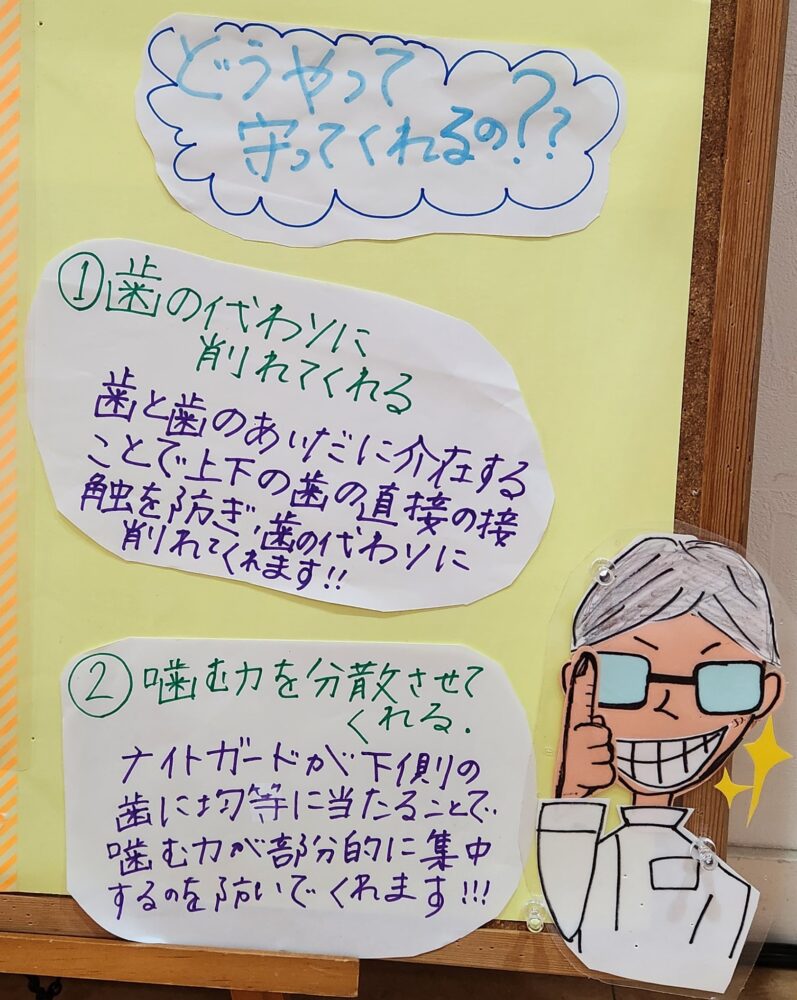 どうやって
守ってくれるの??
①歯の代わりに
削れてくれる
歯と歯のあいだに介在する
ことで上下の歯の直接の接
触を防ぎ、歯の代わりに
削れてくれます!!
②噛む力を分散させて
くれる.
ナイトガードが下側の
歯に均等に当たることで、
噛む力が部分的に集中
するのを防いでくれます!!!